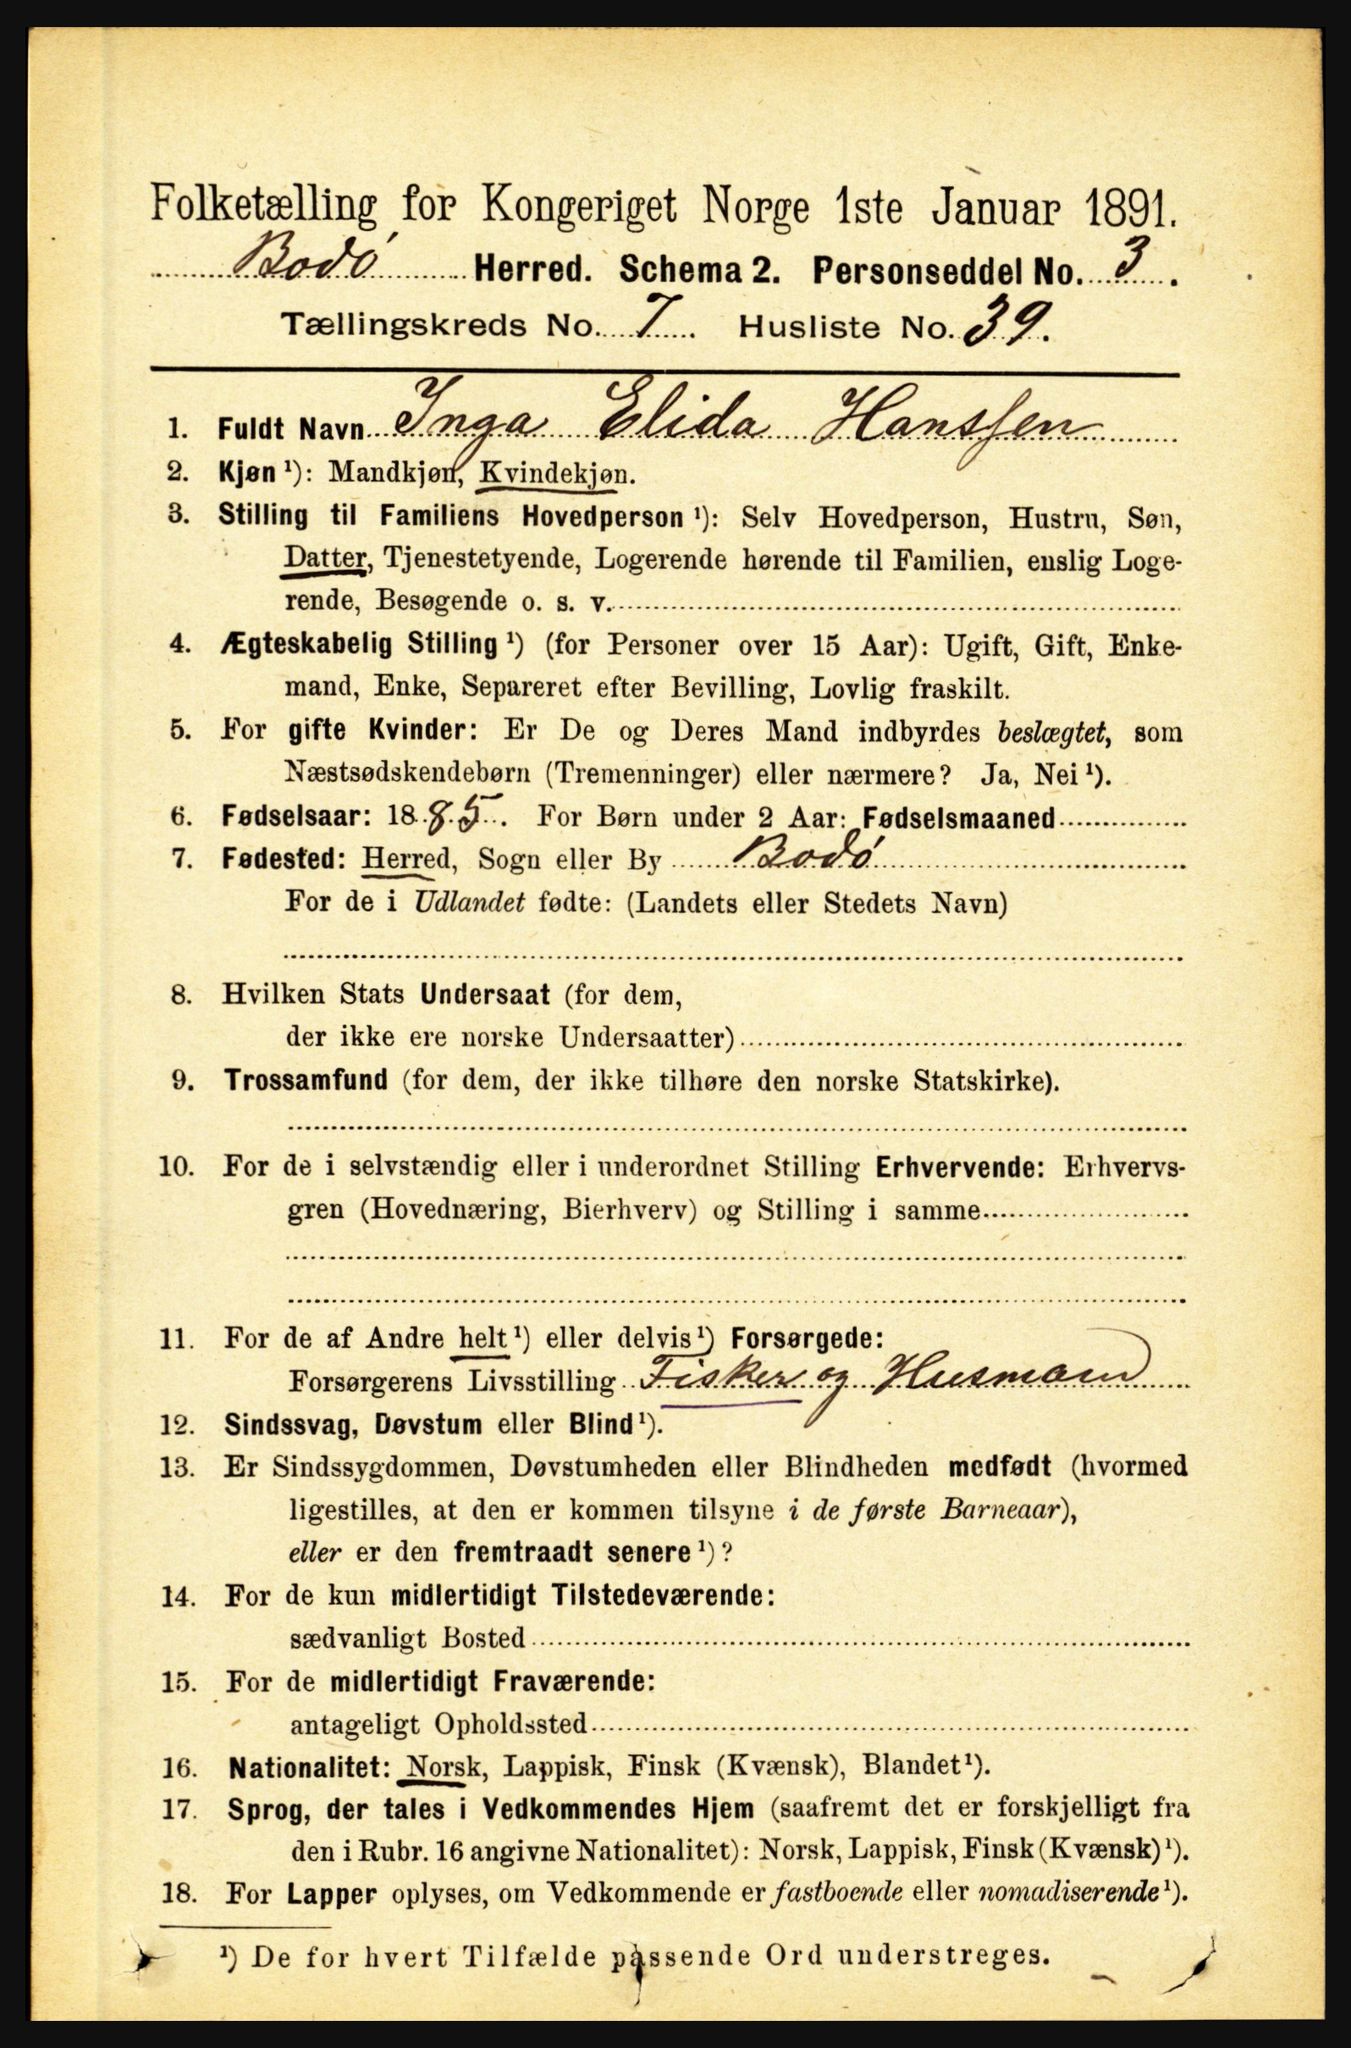 Folketælling for Kongeriget Norge 1ste Januar 1891.
Bodø Herred. Schema 2. Personseddel No. 3.
Tællingskreds No. 7. Husliste No. 39.
1. Fuldt Navn Inga Elida Hanssen
2. Kjøn¹): Mandkjøn, Kvindekjøn.
3. Stilling til Familiens Hovedperson¹): Selv Hovedperson, Hustru, Søn,
Datter, Tjenestetyende, Logerende hørende til Familien, enslig Loge-
rende, Besøgende o. s. v.
4. Ægteskabelig Stilling¹) (for Personer over 15 Aar): Ugift, Gift, Enke-
mand, Enke, Separeret efter Bevilling, Lovlig fraskilt.
5. For gifte Kvinder: Er De og Deres Mand indbyrdes beslægtet, som
Næstsødskendebørn (Tremenninger) eller nærmere? Ja, Nei¹).
6. Fødselsaar: 1885. For Børn under 2 Aar: Fødselsmaaned
7. Fødested: Herred, Sogn eller By Bodø
For de i Udlandet fødte: (Landets eller Stedets Navn)
8. Hvilken Stats Undersaat (for dem,
der ikke ere norske Undersaatter)
9. Trossamfund (for dem, der ikke tilhøre den norske Statskirke).
10. For de i selvstændig eller i underordnet Stilling Erhvervende: Erhvervs-
gren (Hovednæring, Bierhverv) og Stilling i samme
11. For de af Andre helt¹) eller delvis¹) Forsørgede:
Forsørgerens Livsstilling Fisker og Husmand
12. Sindssvag, Døvstum eller Blind¹).
13. Er Sindssygdommen, Døvstumheden eller Blindheden medfødt (hvormed
ligestilles, at den er kommen tilsyne i de første Barneaar),
eller er den fremtraadt senere¹)?
14. For de kun midlertidigt Tilstedeværende:
sædvanligt Bosted
15. For de midlertidigt Fraværende:
antageligt Opholdssted
16. Nationalitet: Norsk, Lappisk, Finsk (Kvænsk), Blandet¹).
17. Sprog, der tales i Vedkommendes Hjem (saafremt det er forskjelligt fra
den i Rubr. 16 angivne Nationalitet): Norsk, Lappisk, Finsk (Kvænsk)¹).
18. For Lapper oplyses, om Vedkommende er fastboende eller nomadiserende¹).
¹) De for hvert Tilfælde passende Ord understreges.